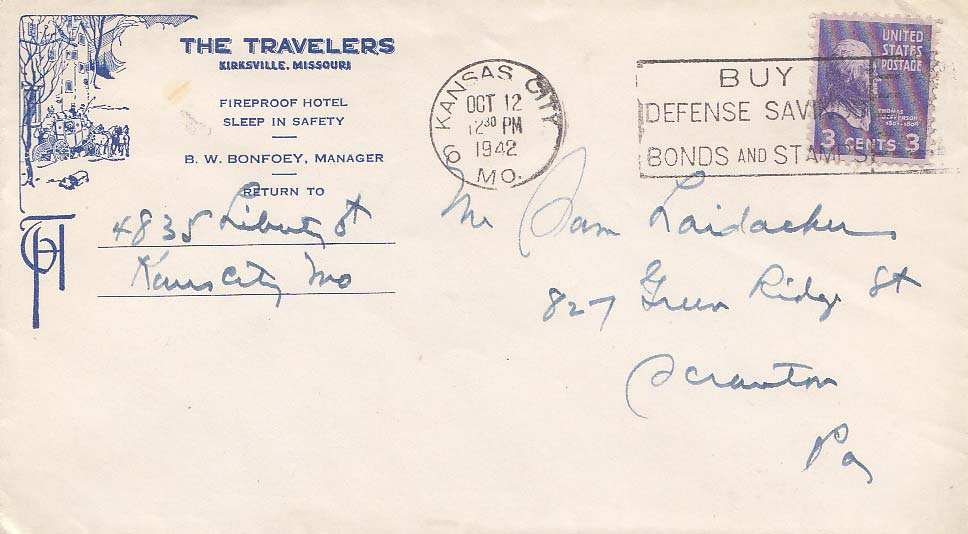 THE TRAVELERS
KIRKSVILLE, MISSOURI
FIREPROOF HOTEL
SLEEP IN SAFETY
B. W. BONFOEY, MANAGER
RETURN TO
4835 Liberty St
Kans City Mo
TH
KANSAS CITY
OCT 12
12 30 PM
1942
MO.
6
BUY
DEFENSE SAVINGS
BONDS AND STAMPS
UNITED
STATES
POSTAGE
THOMAS
JEFFERSON
1801-1809
3 CENTS 3
Mr Sam Laidacker
827 Green Ridge St
Scranton
Pa